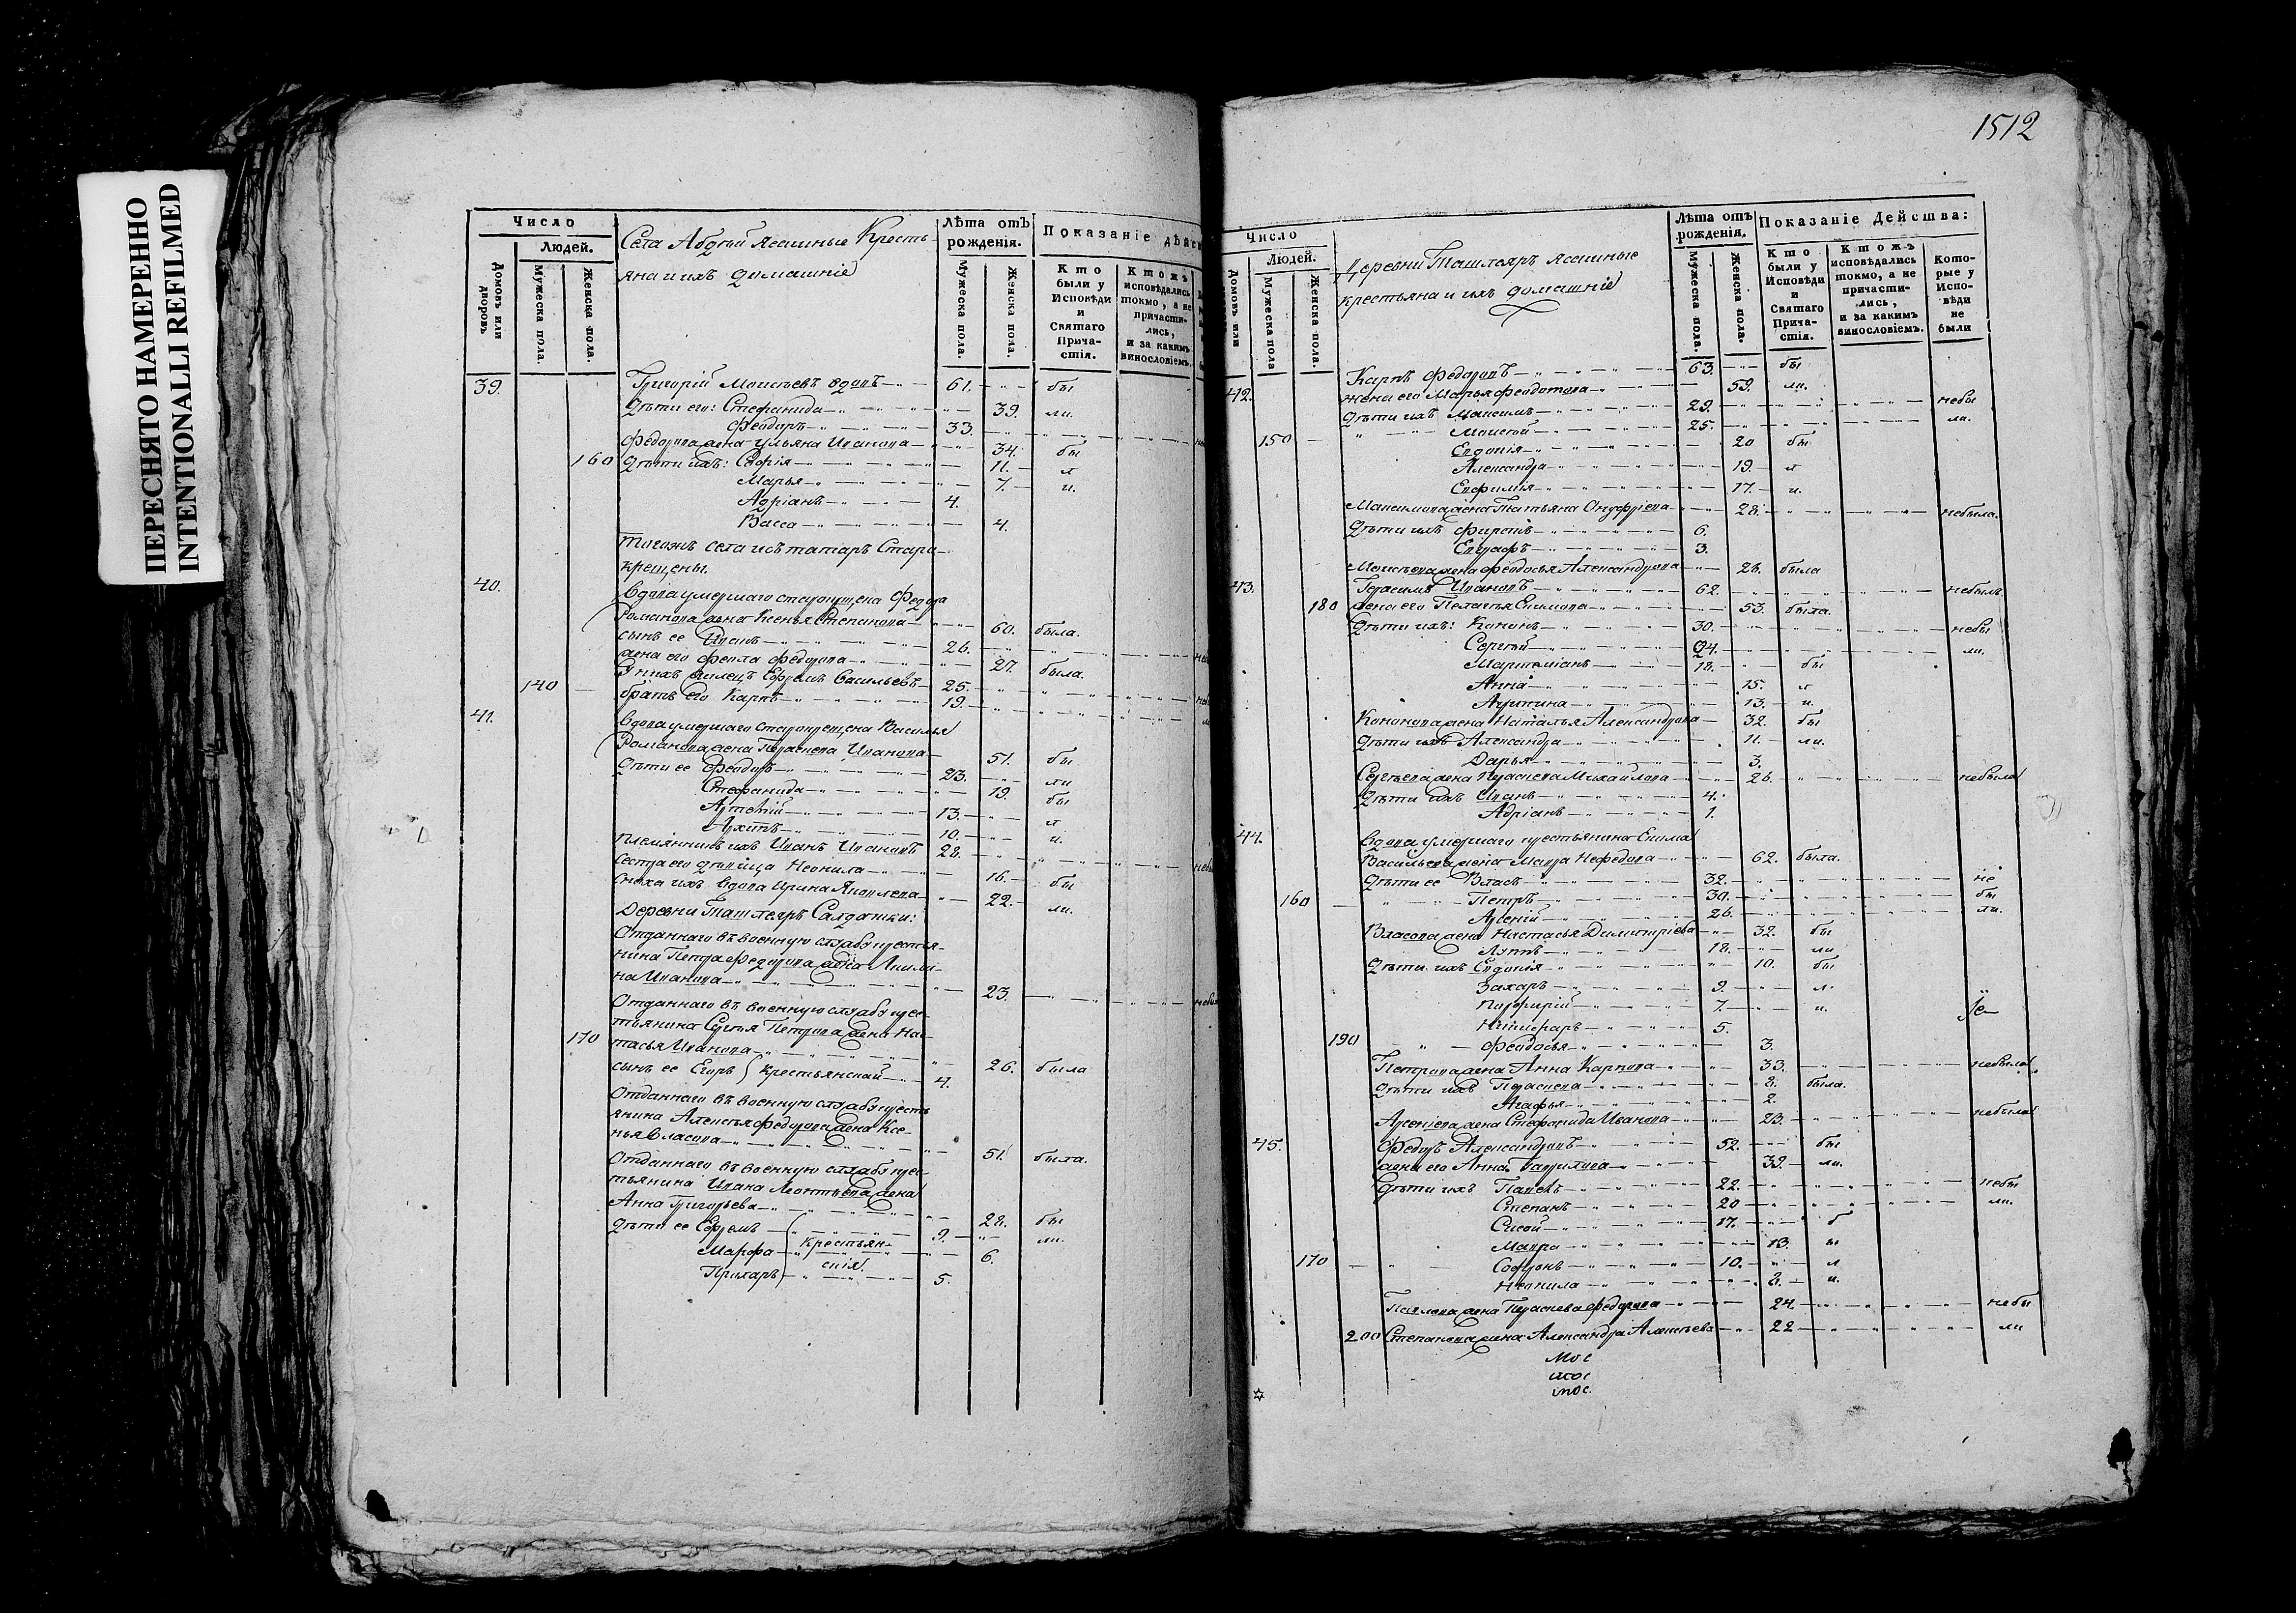 ПЕРЕСНЯТО НАМЕРЕННО
INTENTIONALLI REFILMED
Число
Людей.
Домовъ или дворовъ.
Мужеска пола.
Женска пола.
Села Абдѣй ясашные Кресть-
яна и ихъ домашніе
Лѣта отъ рожденія.
Мужеска пола.
Женска пола.
Показаніе дѣйс
Кто были у Исповѣди и Святаго Прича-стія.
Ктожъ исповѣдались токмо, а не причасти-лись, и за какимъ винословіемъ.
39. Григорій Моисѣевъ вдовъ 61. бы
Дѣти его: Стефанида 39. ли.
Феодоръ 33.
Федорова жена Ульяна Иванова 34. бы
160 Дѣти ихъ: Софія 11. л
Марья 7. и.
Адріанъ 4.
Васса 4.
Тогожъ села изъ татаръ Старо-
крещены.
40. Вдова умершаго старокрещена Федора
Романова жена Ксенья Степанова 60. была.
сынъ ее Иванъ 26.
жена его Фекла Федорова 27. была.
У нихъ жилецъ Ефремъ Васильевъ 25.
140 братъ его Карпъ 19.
41. Вдова умершаго старокрещена Василья
Романова жена Прасковья Иванова 51. бы
Дѣти ее Феодоръ 23. ли
Стефанида 19. бы
Артемій 13. л
Архипъ 10. и.
Племянникъ ихъ Иванъ Ивановъ 28.
Сестра его дѣвица Неонила 16. бы
Сноха ихъ вдова Ирина Яковлева 22. ли.
Деревни Ташлаяръ Салдатки:
Отданнаго въ военную службу крестья-
нина Петра Федорова жена Акили-
на Иванова 23.
Отданнаго въ военную службу крес-
тьянина Сергѣя Петрова жена Нас-
170 тасья Иванова 26. была
сынъ ее Егоръ крестьянской 4.
Отданнаго въ военную службу кресть
янина Алексѣя Федорова жена Ксе-
нья Власова 51. была.
Отданнаго въ военную службу крес-
тьянина Ивана Леонтьева жена
Анна Григорьева 28. бы
Дѣти ее Ефремъ 9. ли.
Марфа крестьян- 6.
скія. 5.
1512
Число
Людей.
Домовъ или
Мужеска пола
Женска пола.
Деревни Ташлаяръ ясашные
крестьяна и ихъ домашніе
Лѣта отъ рожденія.
Мужеска пола.
Женска пола.
Показаніе Действа:
Кто были у Исповѣди и Святаго Прича-стія.
Ктожъ исповѣдались токмо, а не причасти-лись, и за какимъ винословіемъ.
Кото-рые у Испо-вѣди не были
42. Карпъ Федоровъ 63. бы
жена его Марья Феодотова 59. ли.
Дѣти ихъ Максимъ 29. небы
150 Моисей 25. ли.
Евдокія 20 бы
Александра 19. л
Евфимія 17. и.
Максимова жена Татьяна Онуфріева 28. небыла.
Дѣти ихъ Фирсъ 6.
Евграфъ 3.
Моисѣева жена Феодосья Александрова 28. была
43. Герасимъ Ивановъ 62. небылъ
180 жена его Пелагѣя Екимова 53. была.
Дѣти ихъ: Кононъ 30. небы
Сергѣй 24. ли.
Мартеміанъ 18. бы
Анна 15. л
Агрипина 13. и.
Кононова жена Наталья Александрова 32. бы
Дѣти ихъ Александра 11. ли.
Дарья 3.
Сергѣева жена Прасковья Михайлова 26. небыла
Дѣти ихъ Иванъ 4.
Адріанъ 1.
44. Вдова умершаго крестьянина Екима
Васильева жена Мавра Нефедова 62. была.
Дѣти ее Власъ 32. не
160 Петръ 30. бы
Арсеній 26. ли.
Власова жена Настасья Димитріева 32. бы
18. ли
Дѣти ихъ Евдокія 10. бы
Захаръ 9. л.
Порфирій 7. и.
Никифоръ 5.
190 Феодосья 3.
Петрова жена Анна Карпова 33. небыла.
Дѣти ихъ Прасковья 8. была.
Агафья 2.
Арсеніева жена Стефанида Иванова 23. небыла
45. Федоръ Александровъ 52. бы
жена его Анна Гаврилова 39. ли.
Дѣти ихъ Павелъ 22. небы
Степанъ 20 ли.
Сысой 17. б
Мавра 13. ы
170 Софронъ 10. л
Неонила 8. и.
Павлова жена Прасковья Федорова 24. небы
200 Степанова жена Александра Алексѣева 22 ли